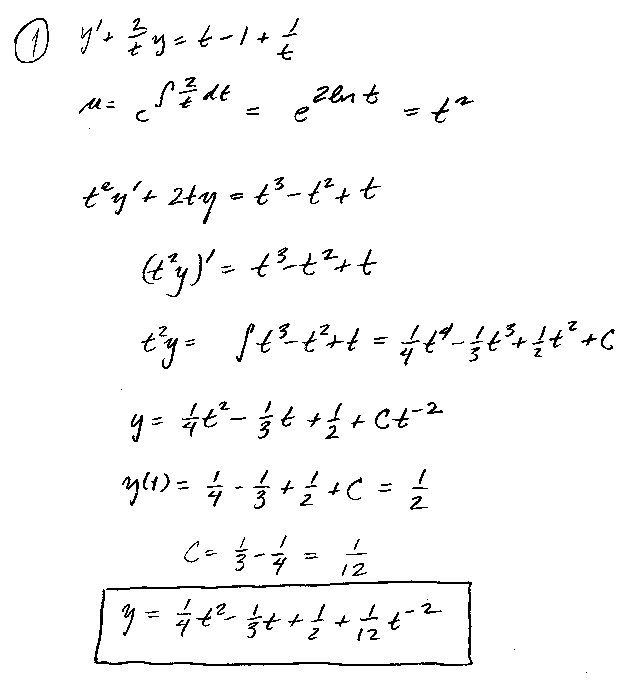 ① y' + 2/t y = t - 1 + 1/t
μ = e^∫ 2/t dt = e^2ln t = t²
t²y' + 2ty = t³ - t² + t
(t²y)' = t³ - t² + t
t²y = ∫ t³ - t² + t = 1/4 t⁴ - 1/3 t³ + 1/2 t² + C
y = 1/4 t² - 1/3 t + 1/2 + Ct⁻²
y(1) = 1/4 - 1/3 + 1/2 + C = 1/2
C = 1/3 - 1/4 = 1/12
y = 1/4 t² - 1/3 t + 1/2 + 1/12 t⁻²